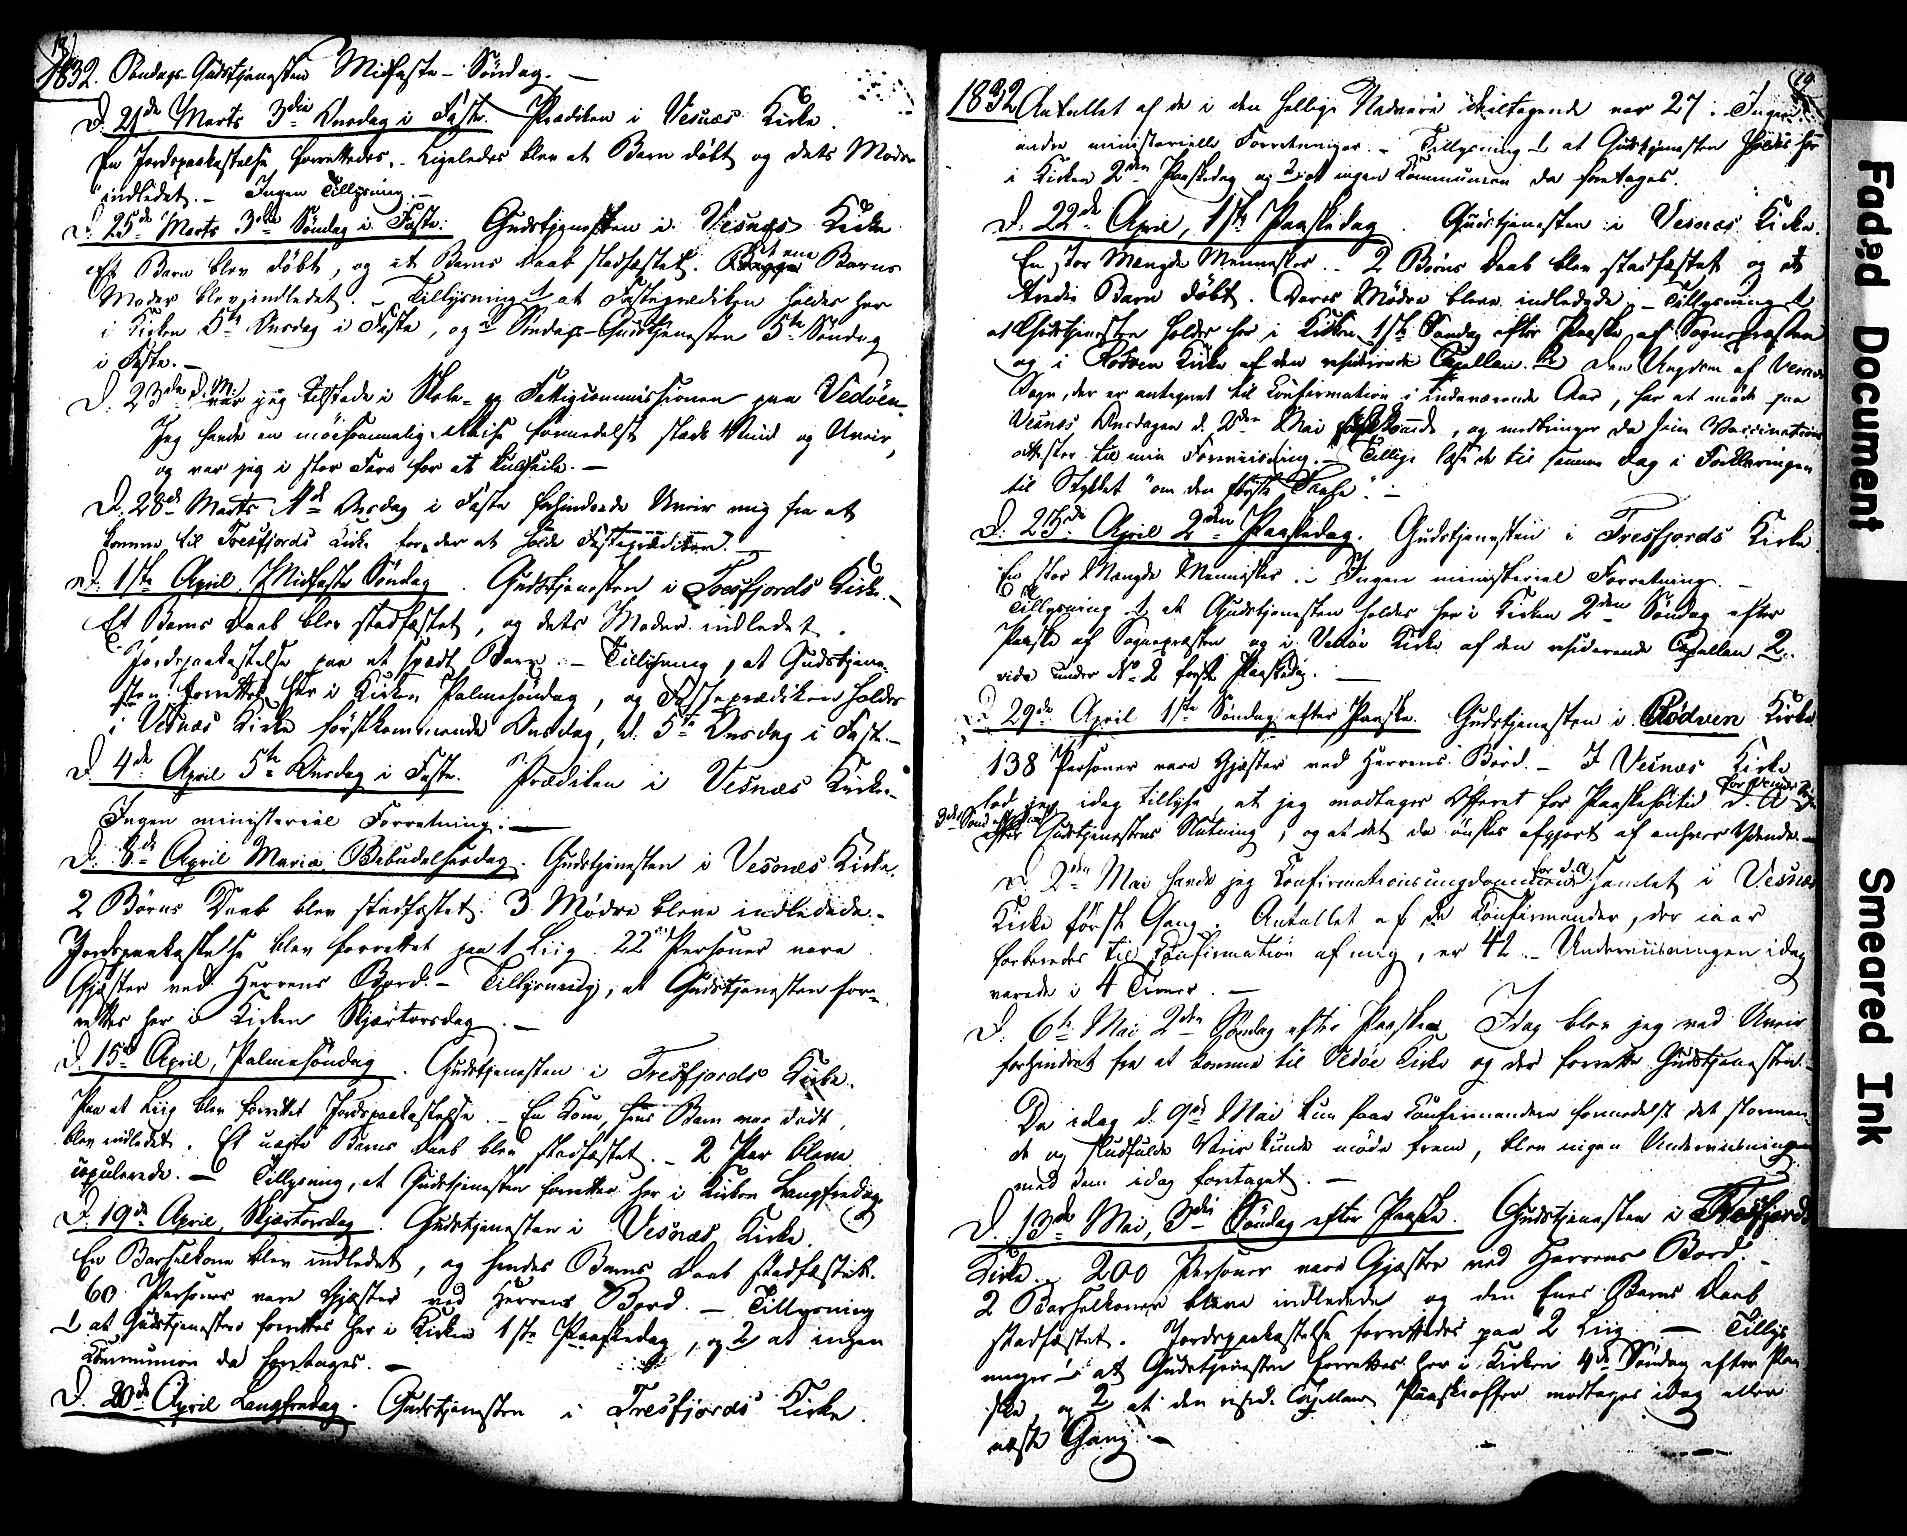 18
1832. Søndags-Gudstjenesten Midfaste-Søndag. —
D. 21de Marts 3die Onsdag i Faste. Prædiken i Vesnæs Kirke.
En Jordspaakastelse forrettedes. – Ligeledes blev et Barn döbt og dets Moder
indledet. – Ingen Tillysning. –
D. 25de Marts 3die Söndag i Faste. Gudstjenesten i Vesnæs Kirke
Et Barn blev döbt, og et Barns Daab stadfæstet. Det ene Barns
Moder blev indledet. – Tillysning 1 at Fasteprædiken holdes her
i Kirken 5te Onsdag i Faste, og 2 Søndags-Gudstjenesten 5te Søndag
i Faste. –
D. 23de d. M. var jeg tilstede i Skole- og Fattigcommissionen paa Vedöen.
Jeg havde en möisommelig Reise formedelst stærk Vind og Uveir,
og var jeg i stor Fare for at kuldseile. —
D. 28de Marts 4de Onsdag i Faste forhindrede Uveir mig fra at
komme til Tresfjords Kirke for der at holde Fasteprædiken. —
D. 1ste April, Midfaste Söndag. Gudstjenesten i Tresfjords Kirke. –
Et Barns Daab blev stadfæstet, og dets Moder indledet.
Jordspaakastelse paa et spædt Barn. – Tillysning, at Gudstjene-
sten forrettes her i Kirken Palmesöndag, og Fasteprædiken holdes
i Vesnæs Kirke förstkommende Onsdag, d. 5te Onsdag i Faste. –
D. 4de April 5te Onsdag i Faste. Prædiken i Vesnæs Kirke. –
Ingen ministeriel Forretning. —
D. 8de April Mariæ Bebudelsesdag. Gudstjenesten i Vesnæs Kirke.
2 Börns Daab blev stadfæstet. 3 Mödre bleve indledede. –
Jordspaakastelse blev forrettet paa 1 Liig. 22 Personer vare
Gjæster ved Herrens Bord. – Tillysning, at Gudstjenesten for-
rettes her i Kirken Skjærtorsdag. —
D. 15de April, Palmesöndag. Gudstjenesten i Tresfjords Kirke.
Paa et Liig blev forrettet Jordspaakastelse. – En Kone, hvis Barn var dödt,
blev indledet. Et uægte Barns Daab blev stadfæstet. – 2 Par bleve
copulerede. – Tillysning, at Gudstjenesten forrettes her i Kirken Langfredag.
D. 19de April, Skjærtorsdag. Gudstjenesten i Vesnæs Kirke.
En Barselkone blev indledet, og hendes Barns Daab stadfæstet.
60 Personer vare Gjæster ved Herrens Bord. – Tillysning
1 at Gudstjenesten forrettes her i Kirken 1ste Paaskedag, og 2 at ingen
Communion da foretages. –
D. 20de April Langfredag. Gudstjenesten i Tresfjords Kirke.
19
1832 Antallet af de i den hellige Nadvere deeltagende var 27. Ingen
andre ministerielle Forretninger. – Tillysning 1 at Gudstjenesten holdes her
i Kirken 2den Paaskedag og 2 at ingen Communion da foretages.
D. 22de April, 1ste Paaskedag. Gudstjenesten i Vesnæs Kirke.
En stor Mængde Mennesker. – 2 Börns Daab blev stadfæstet og et
tredie Barn döbt. Deres Mödre bleve indledede. – Tillysning 1
at Gudstjenesten holdes her i Kirken 1ste Söndag efter Paaske af Sognepræsten
og i Rödven Kirke af den residerende Capellan. 2 Den Ungdom af Vesnæs
Sogn, der er antegnet til Confirmation i indeværende Aar, har at möde paa
Vesnæs Onsdagen d. 2den Mai, og medbringer da sin Vaccinations
attester til min Foreviisning. – Tillige læse de til samme Dag i Forklaringen
til Stykket "om den förste Troens". –
D. 23de April 2den Paaskedag. Gudstjenesten i Tresfjords Kirke.
En stor Mængde Mennesker. – Ingen ministeriel Forretning. –
Tillysning 1 at Gudstjenesten holdes her i Kirken 2den Söndag efter
Paaske af Sognepræsten og i Vedöe Kirke af den residerende Capellan 2.
vide under No 2 förste Paaskedag. —
D. 29de April 1ste Söndag efter Paaske. Gudstjenesten i Rödven Kirke
138 Personer vare Gjæster ved Herrens Bord. – I Vesnæs Kirke
lod jeg idag tillyse, at jeg modtager Offeret for Paaskehöitid
efter Gudstjenestens Slutning, og at det da önskes afgjort af enhver Ydende. –
D. 2den Mai havde jeg Confirmationsungdommen for d. A. samlet i Vesnæs
Kirke förste Gang. Antallet af de Confirmander, der iaar
forberedes til Confirmation af mig, er 42. – Underviisningen idag
varede i 4 Timer. –
D. 6te Mai 2den Söndag efter Paaske. Idag blev jeg ved Uveir
forhindret fra at komme til Vedöe Kirke og der forrette Gudstjenesten. –
Da idag d. 9de Mai kun faae Confirmandere formedelst det stormen-
de og Veir kunde möde frem, blev ingen Underviisningen
med dem idag foretaget. –
D. 13de Mai, 3die Söndag efter Paaske. Gudstjenesten i Tresfjords
Kirke. 200 Personer vare Gjæster ved Herrens Bord. –
2 Barselkoner bleve indledede og den Enes Barns Daab
stadfæstet. Jordspaakastelse forrettedes paa 2 Liig. – Tillys-
ninger 1 at Gudstjenesten forrettes her i Kirken 4de Söndag efter Paa-
ske, og 2 at den resid. Capellans Paaskeoffer modtages idag eller
næste Gang. –
Faded Document
Smeared Ink